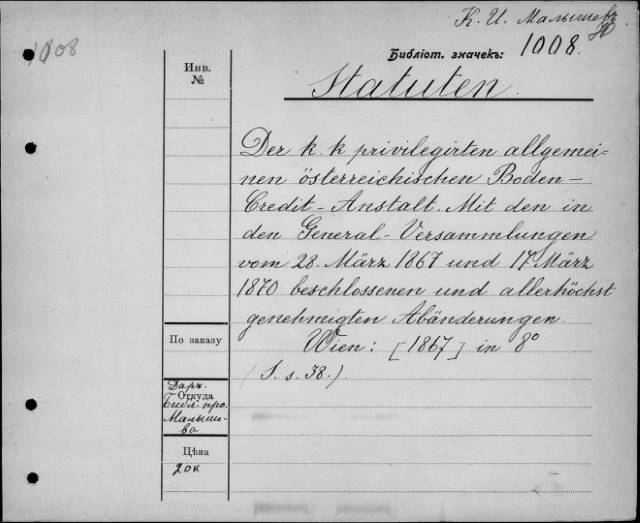 К. И. Малышевъ
1008
Библіот. значекъ: 1008.
Инв.
№
Statuten.
Der k. k privilegirten allgemei-
nen österreichischen Boden-
Credit-Anstalt. Mit den in
den General-Versammlungen
vom 28. März 1867 und 17 März
1870 beschlossenen und allerhöchst
genehmigten Abänderungen.
По заказу
Wien: [1867] in 8º
(S. s. 38.)
Даръ.
Откуда
Библ. про.
Малыше-
ва
Цѣна
20к